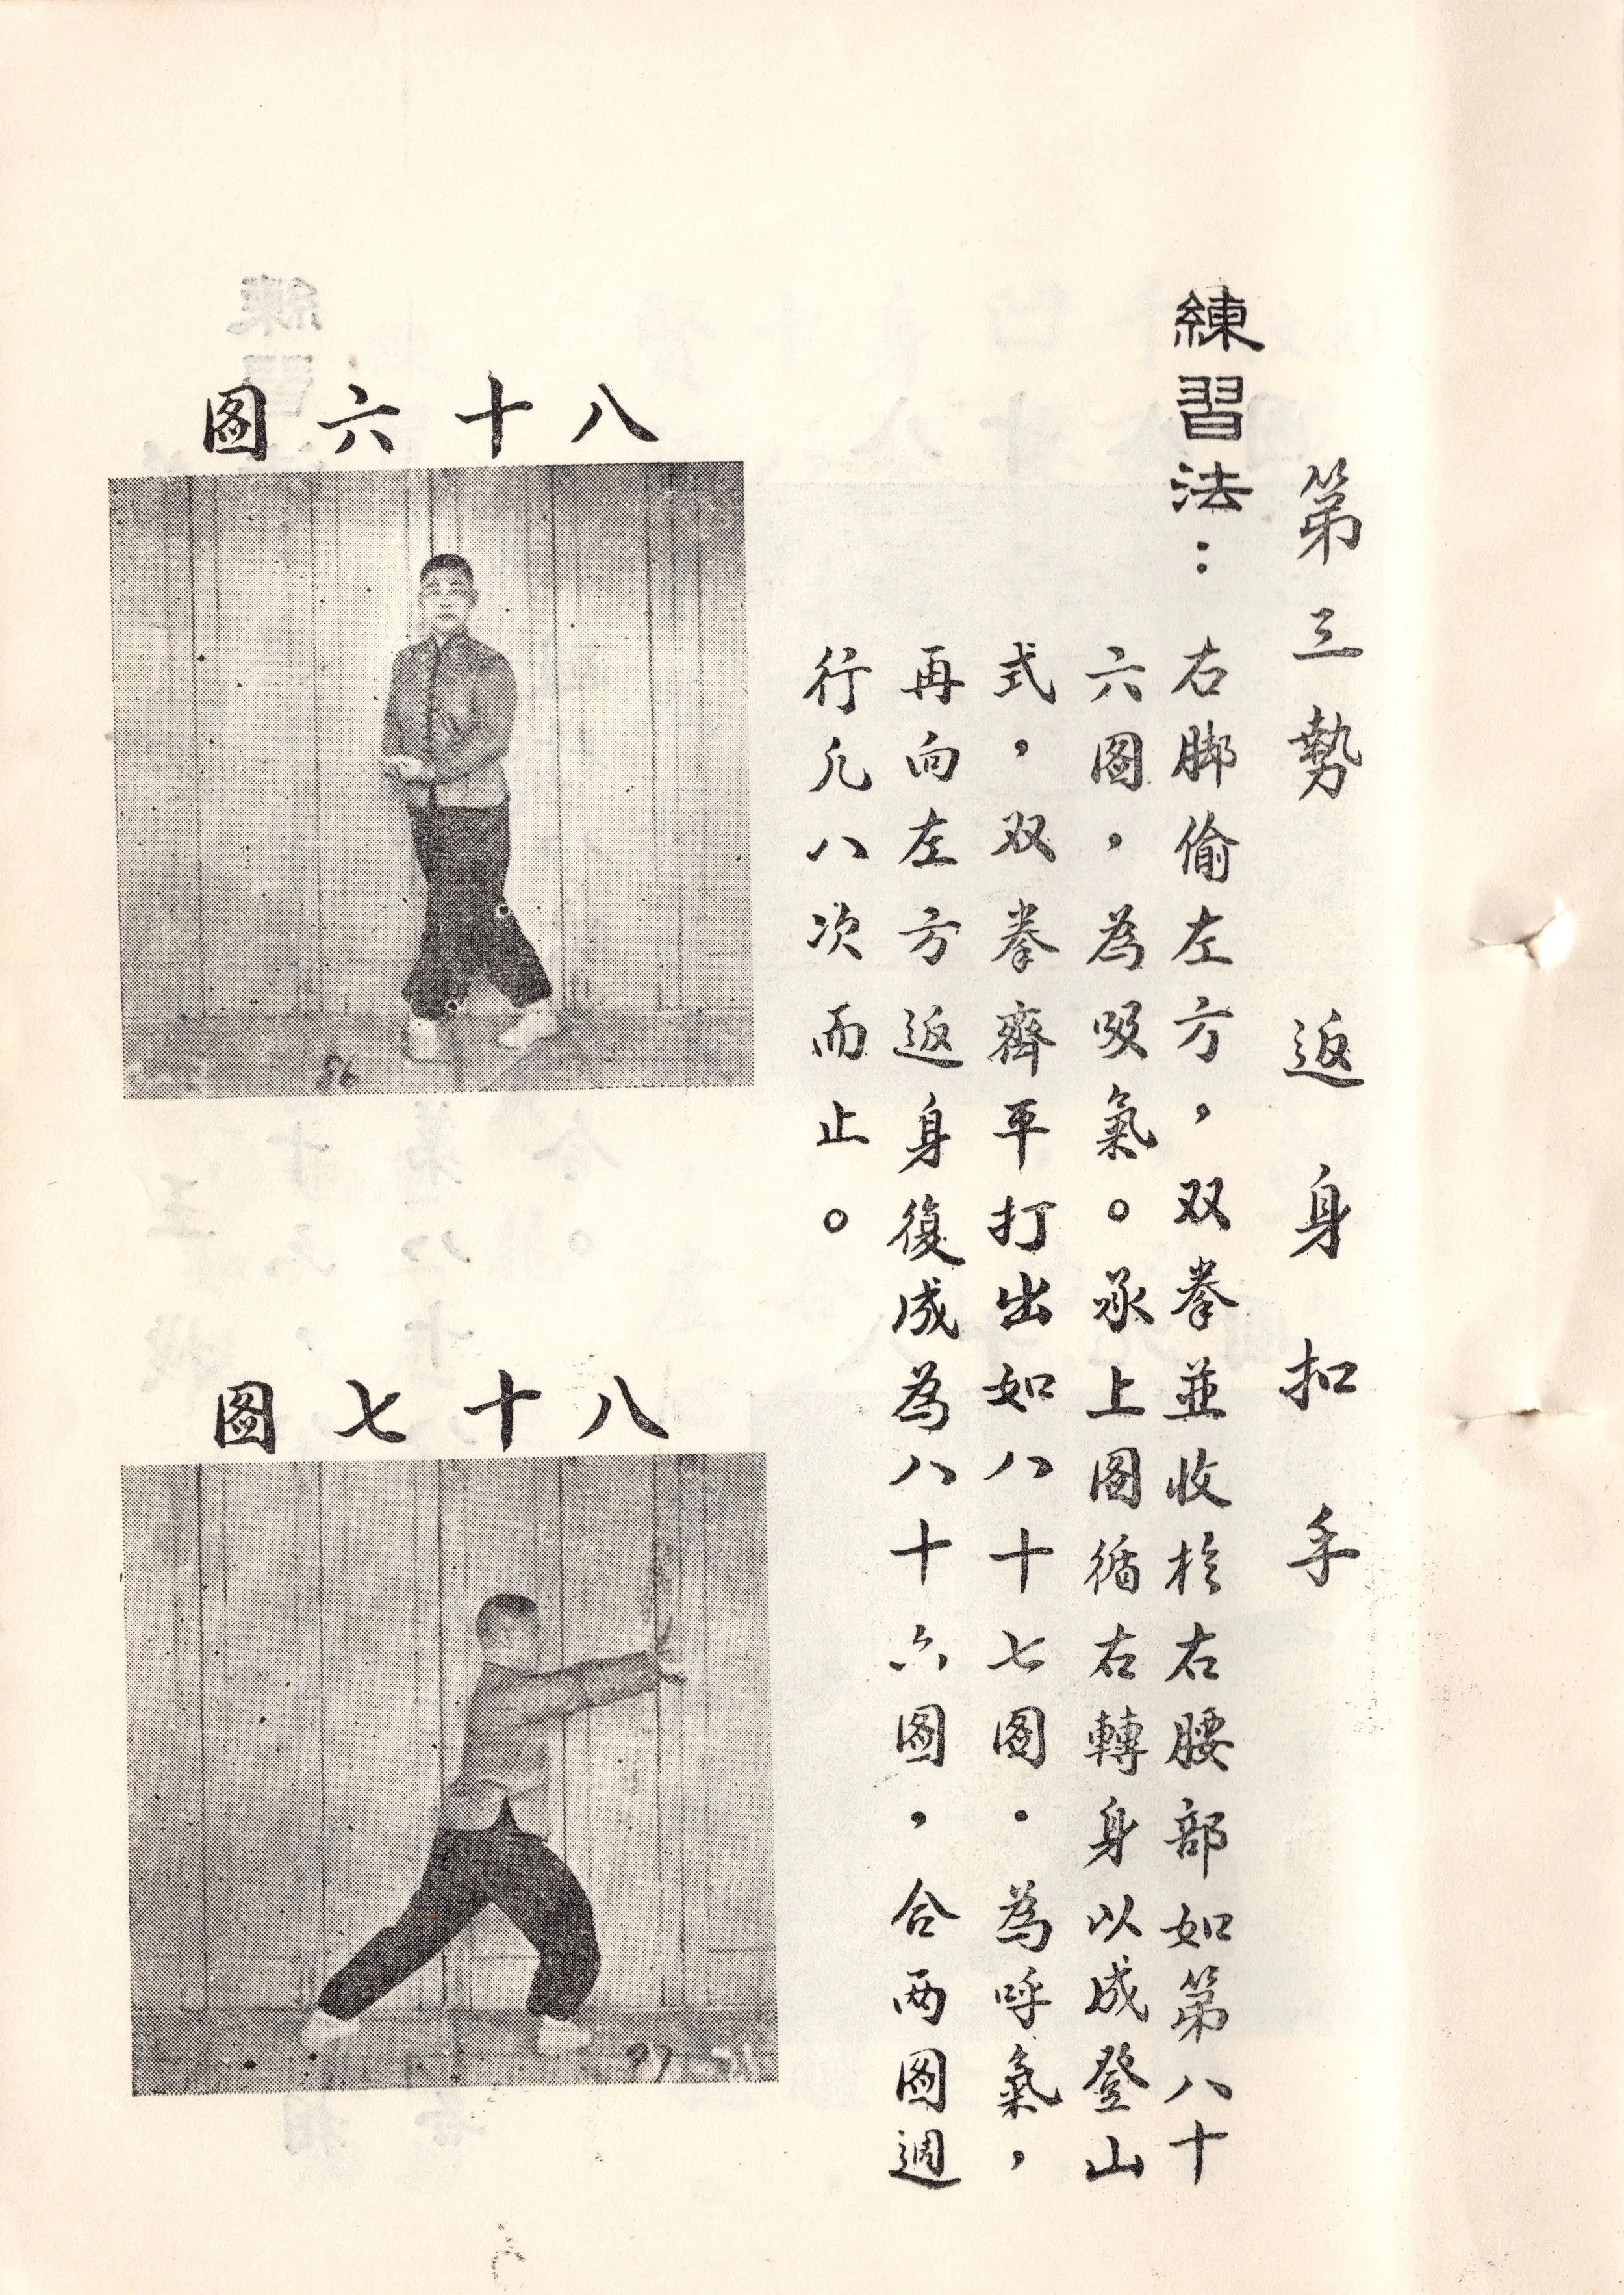 第三勢　返身扣手
練習法：右脚偷左方，双拳並收於右腰部如第八十
六圖，為吸氣。承上圖循右轉身以成登山
式，双拳齊平打出如八十七圖。為呼氣，
再向左方返身復成為八十六圖，合两圖週
行凢八次而止。
八十六圖
86
八十七圖